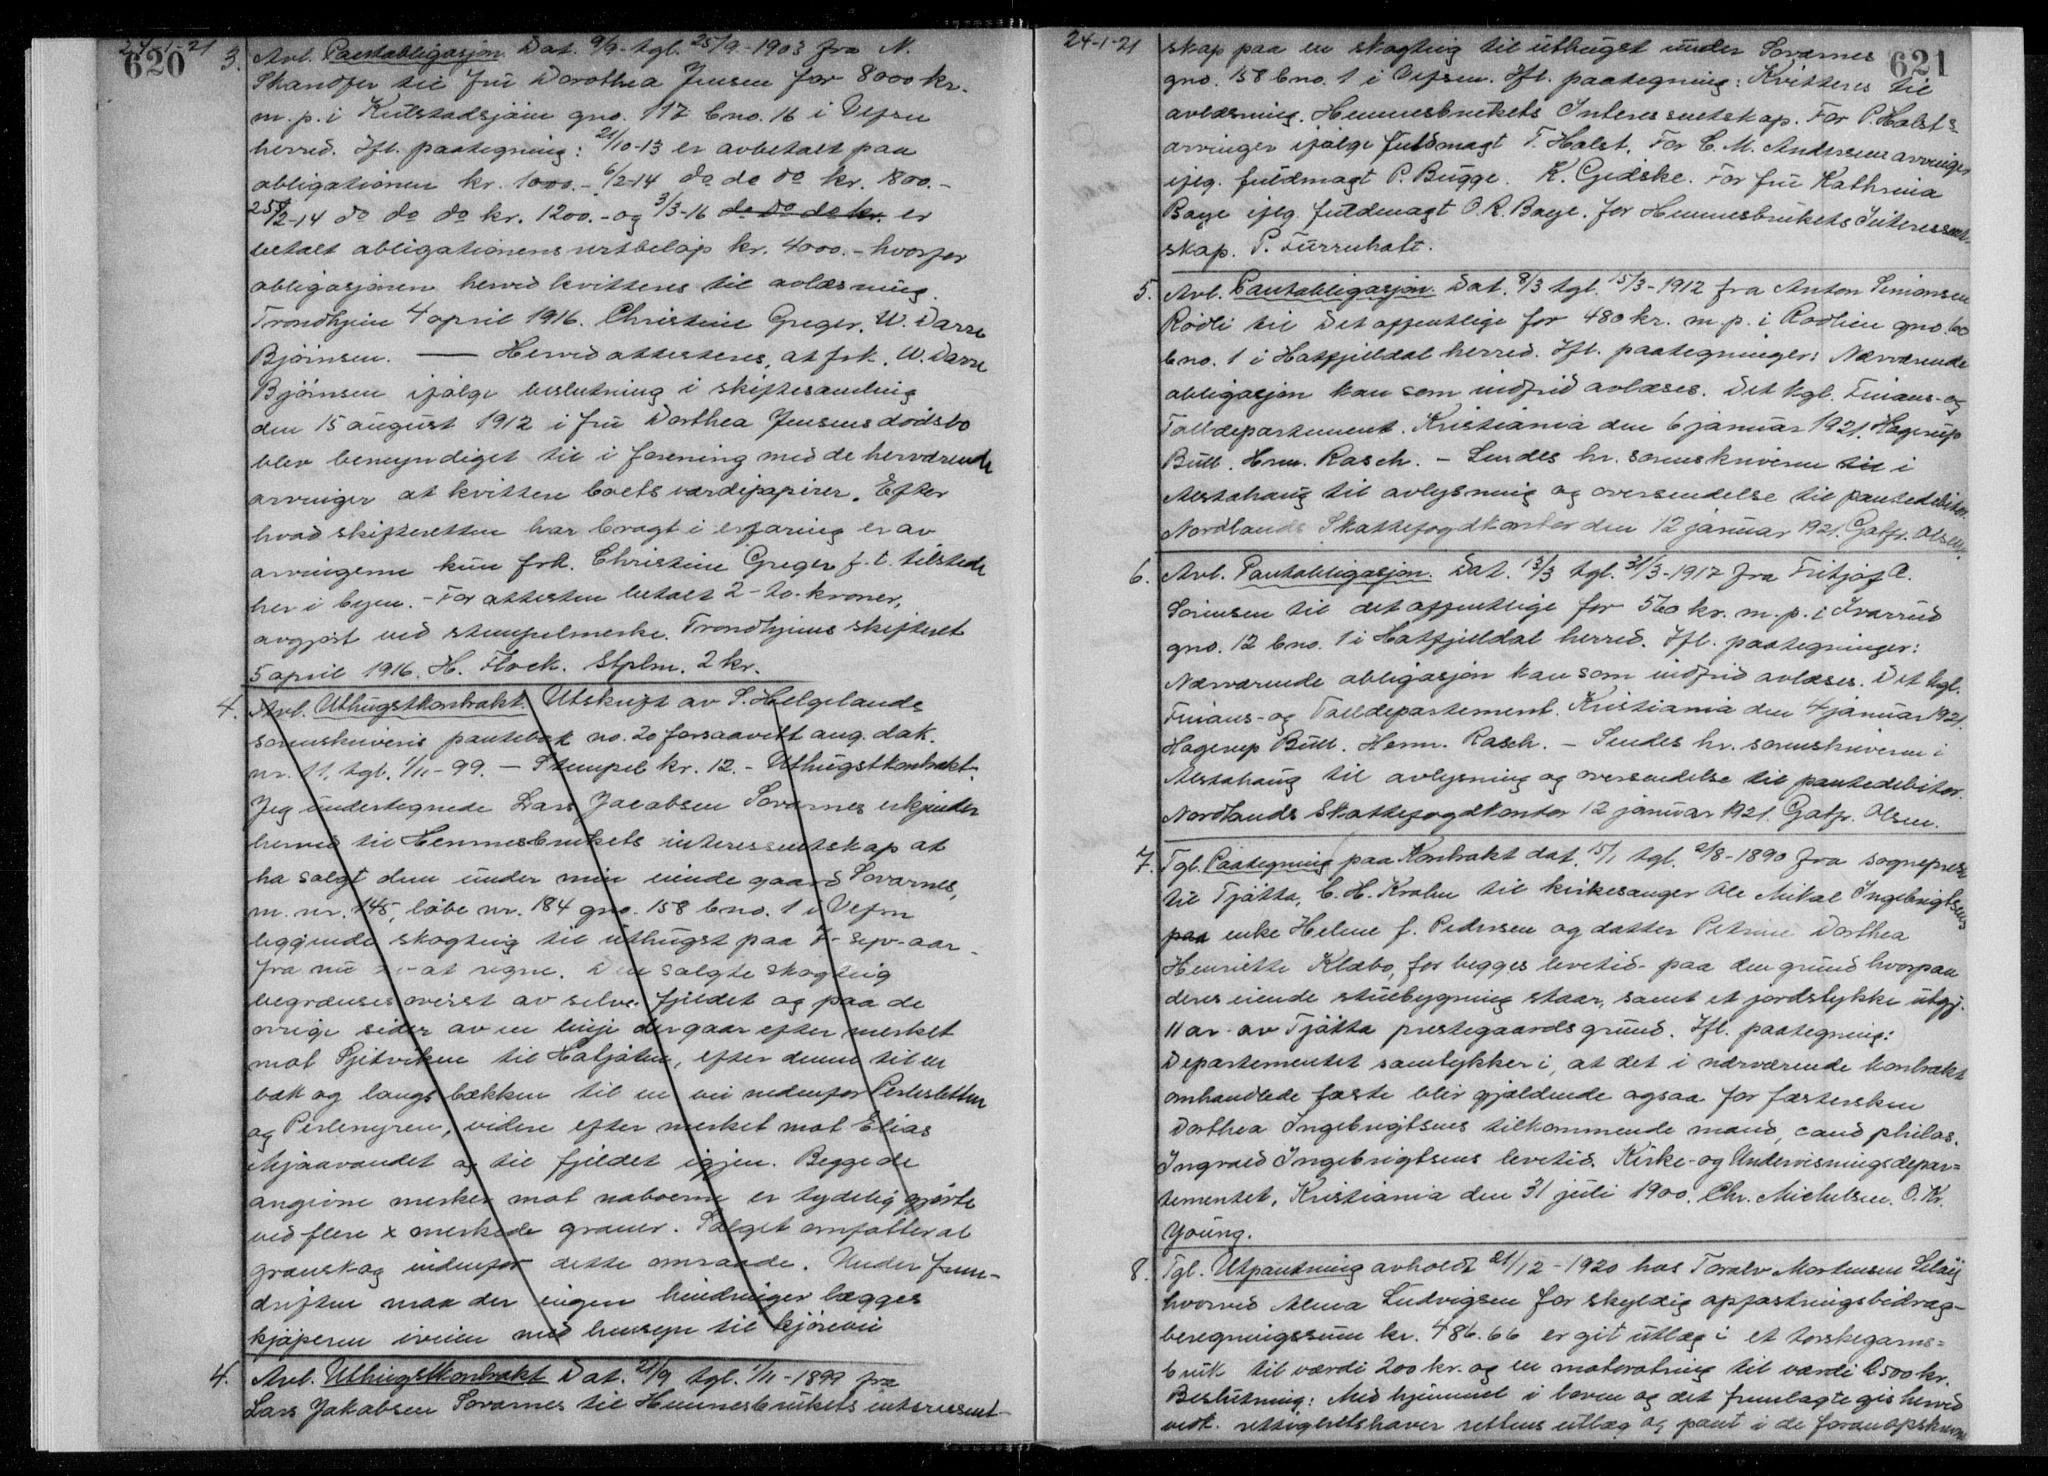 24-1-21
620
3. Avl. Pantobligasjon. Dat. 9/9- tgl. 25/9-1903 fra N.
Skandfer til fru Dorothea Jensen for 8000 kr.
m. p. i Kulstadsjøen gno. 117 bno. 16 i Vefsn
herred. Ifl. paategning: 21/10-13 er avbetalt paa
obligationen kr. 1000.- 6/2-14 do do do kr. 1800.-
25/2-14 do do do kr. 1200.- og 3/3-16 do do do kr. er
betalt obligationens restbeløp kr. 4000.- hvorfor
obligasjonen herved kvitteres til avlæsning.
Trondhjem 4 april 1916. Christine Greger. W. Darre
Bjørnsen. — Herved attesteres, at frk. W. Darre
Bjørnsen ifølge beslutning i skiftesamling
den 15 august 1912 i fru Dorthea Jensens dødsbo
blev bemyndiget til i forening med de herværende
arvinger at kvittere boets værdipapirer. Efter
hvad skifteretten har bragt i erfaring er av
arvingerne kun frk. Christine Greger f. t. tilstede
her i byen. - For attesten betalt 2 - to - kroner,
avgjort ved stempelmerke. Trondhjems skifteret
5 april 1916. H. Flock. Stplm. 2 kr.
4. Avl. Uthugstkontrakt. Utskrift av S. Helgelands
sorenskriveris pantebok no. 20 forsaavitt ang. dok.
nr. 11, tgl. 1/11-99. - Stempel kr. 12.- Uthugstkontrakt.
Jeg undertegnede Lars Jacobsen Sovarnes erkjender
herved til Hemnesbrukets interessentskap at
ha solgt den under min eiende gaard Sovarnes,
m. nr. 145, løbe nr. 184 gno. 158 bno. 1 i Vefsn
liggende skogteig til uthugst paa 7- syv- aar
fra nu av at regne. Den solgte skogteig
begrænses øverst av selve fjeldet og paa de
øvrige sider av en linje der gaar efter merket
mot til, efter denne til en
bæk og langs bækken til en vei nedenfor Perlesletten
og Perlemyren, videre efter merket mot Elias
Mjaavandet og til fjeldet igjen. Begge de
angivne merker mot naboerne er tydelig gjorte
ved flere x merkede graner. Salget omfatter al
granskog indenfor dette omraade. Under frem-
driften maa der ingen hindringer lægges
kjøperen iveien med hensyn til kjørevei
4. Avl. Uthugstkontrakt Dat. 21/9 tgl. 1/11-1899 fra
Lars Jakobsen Sovarnes til Hemnesbrukets interessent-
24-1-21
621
skap paa en skogteig til uthugst under Sovarnes
gno. 158 bno. 1 i Vefsn. Ifl. paategning: Kvitteres til
avlæsning. Hemnesbrukets Interessentskap. For P. Holsts
arvinger ifølge fuldmagt T. Holst. For C. M. Andersens arvinger
ifølg. fuldmagt P. Bugge. K. Gidske. For fru Kathrina
Baye ifølg. fuldmagt O. R. Baye. for Hemnesbrukets Interessent-
skap. P. Furuholt.
5. Avl. Pantobligasjon. Dat. 8/3 tgl. 15/3-1912 fra Anton Simonsen
Rødli til Det offentlige for 480 kr. m. p. i Rødlien gno. 60
bno. 1 i Hatfjelldal herred. Ifl. paategninger: Nærværende
obligasjon kan som indfrid avlæses. Det kgl. Finans- og
Tolldepartement. Kristiania den 6 januar 1921. Hagerup
Bull. Hrm. Rasch. - Sendes hr. sorenskriveren til i
Alstahaug til avlysning og oversendelse til pantedebitor.
Nordlands Skattefogdkontor den 12 januar 1921. Gotfr. Olsen.
6. Avl. Pantobligasjon. Dat. 13/3 tgl. 31/3-1917 fra Fritjof A.
Sørensen til det offentlige for 560 kr. m. p. i Ivarrud
gno. 12 bno. 1 i Hatfjelldal herred. Ifl. paategninger:
Nærværende obligasjon kan som indfrid avlæses. Det kgl.
Finans- og Tolldepartement. Kristiania den 4 januar 1921.
Hagerup Bull. Herm. Rasch. - Sendes hr. sorenskriveren i
Alstahaug til avlysning og oversendelse til pantedebitor.
Nordlands Skattefogdkontor 12 januar 1921. Gotfr. Olsen.
7. Tgl. Paategning paa Kontrakt dat. 15/1 tgl. 2/8-1890 fra sogneprest
til Tjøtta, C. H. Krohn til kirkesanger Ole Mikal Ingebrigtsens
paa enke Helene f. Pedersen og datter Petrine Dorthea
Henriette Klæbo, for begges levetid- paa den grund hvorpaa
deres eiende stuebygning staar, samt et jordstykke utgj.
11 ar av Tjøtta prestegaards grund. Ifl. paategning:
Departementet samtykker i, at det i nærværende kontrakt
omhandlede fæste blir gjældende ogsaa for fæstersken
Dorthea Ingebrigtsens tilkommende mand, cand philos.
Ingvald Ingebrigtsens levetid. Kirke- og Undervisningsdepar=
tementet, Kristiania den 31 juli 1900. Chr. Michelsen. O. Kr.
Young.
8. Tgl. Utpantning avholdt 21/12-1920 hos Toralv Mortensen Seløy
hvorved Alma Ludvigsen for skyldig opfostringsbidrag-
beregningssum kr. 486.66 er git utlæg i et torskegarns=
bruk til værdi 200 kr. og en til værdi 2500 kr.
Beslutning: Med hjemmel i loven og det fremlagte gis herved
vedk. rettighetshaver rettens utlæg og pant i de foran opskrevne